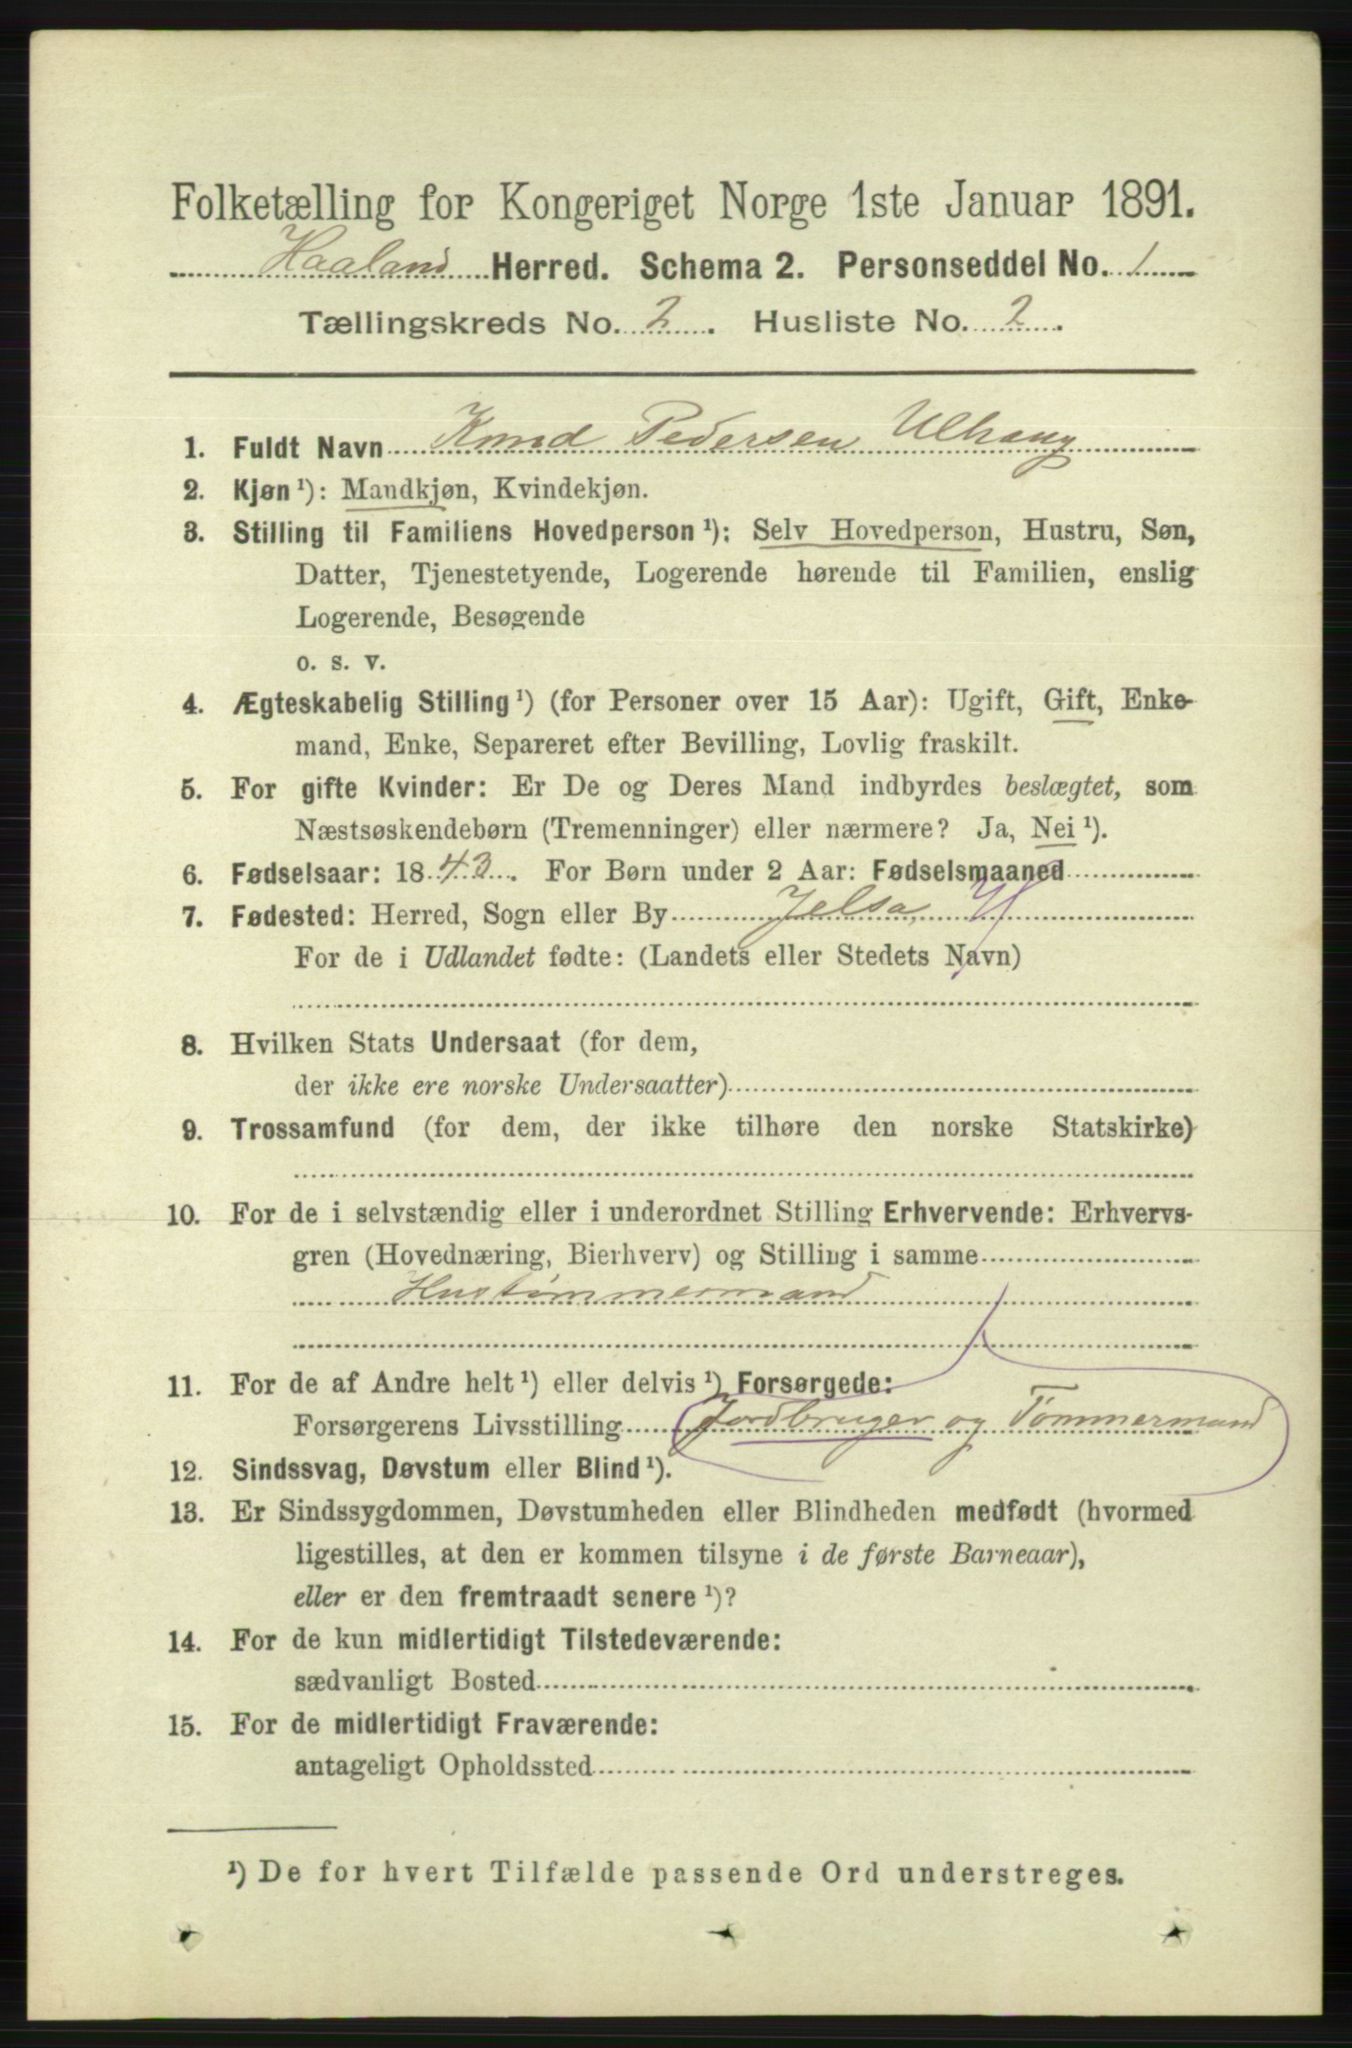 Folketælling for Kongeriget Norge 1ste Januar 1891.
Haaland Herred. Schema 2. Personseddel No. 1
Tællingskreds No. 2. Husliste No. 2.
1. Fuldt Navn Knud Pedersen Ulhaug
2. Kjøn ¹): Mandkjøn, Kvindekjøn.
3. Stilling til Familiens Hovedperson ¹): Selv Hovedperson, Hustru, Søn,
Datter, Tjenestetyende, Logerende hørende til Familien, enslig
Logerende, Besøgende
o. s. v.
4. Ægteskabelig Stilling ¹) (for Personer over 15 Aar): Ugift, Gift, Enke-
mand, Enke, Separeret efter Bevilling, Lovlig fraskilt.
5. For gifte Kvinder: Er De og Deres Mand indbyrdes beslægtet, som
Næstsøskendebørn (Tremenninger) eller nærmere? Ja, Nei ¹).
6. Fødselsaar: 1843. For Børn under 2 Aar: Fødselsmaaned
7. Fødested: Herred, Sogn eller By Jelsa
For de i Udlandet fødte: (Landets eller Stedets Navn)
8. Hvilken Stats Undersaat (for dem,
der ikke ere norske Undersaatter)
9. Trossamfund (for dem, der ikke tilhøre den norske Statskirke)
10. For de i selvstændig eller i underordnet Stilling Erhvervende: Erhvervs-
gren (Hovednæring, Bierhverv) og Stilling i samme
Hustømmermand
11. For de af Andre helt ¹) eller delvis ¹) Forsørgede:
Forsørgerens Livsstilling Jordbruger og Tømmermand
12. Sindssvag, Døvstum eller Blind ¹).
13. Er Sindssygdommen, Døvstumheden eller Blindheden medfødt (hvormed
ligestilles, at den er kommen tilsyne i de første Barneaar),
eller er den fremtraadt senere ¹)?
14. For de kun midlertidigt Tilstedeværende:
sædvanligt Bosted
15. For de midlertidigt Fraværende:
antageligt Opholdssted
¹) De for hvert Tilfælde passende Ord understreges.